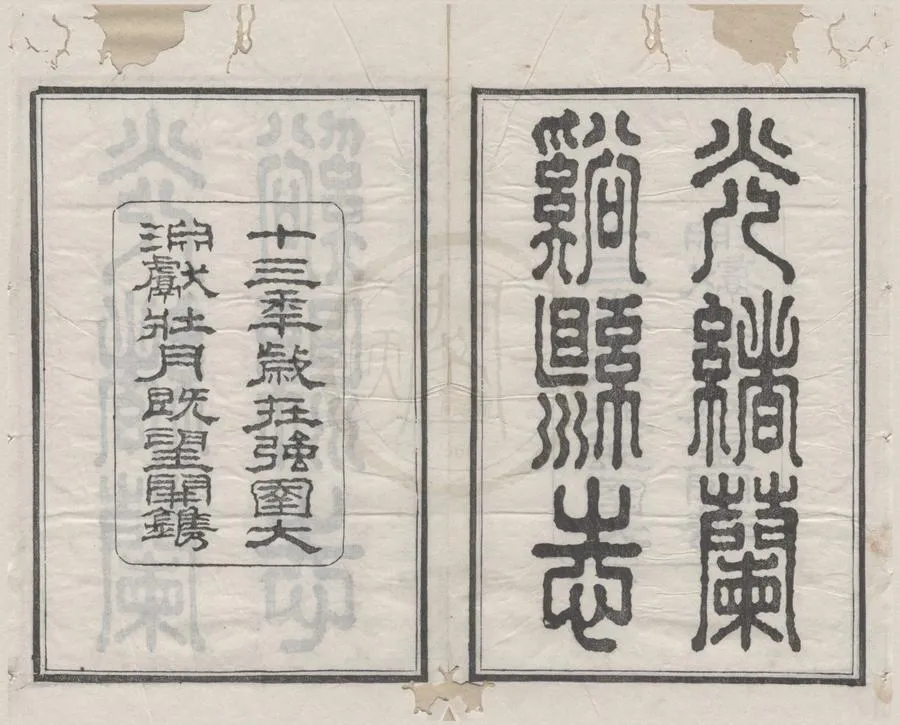 光緒蘭
谿縣志
十三年歲在強圉大
淵獻壯月既望開鐫